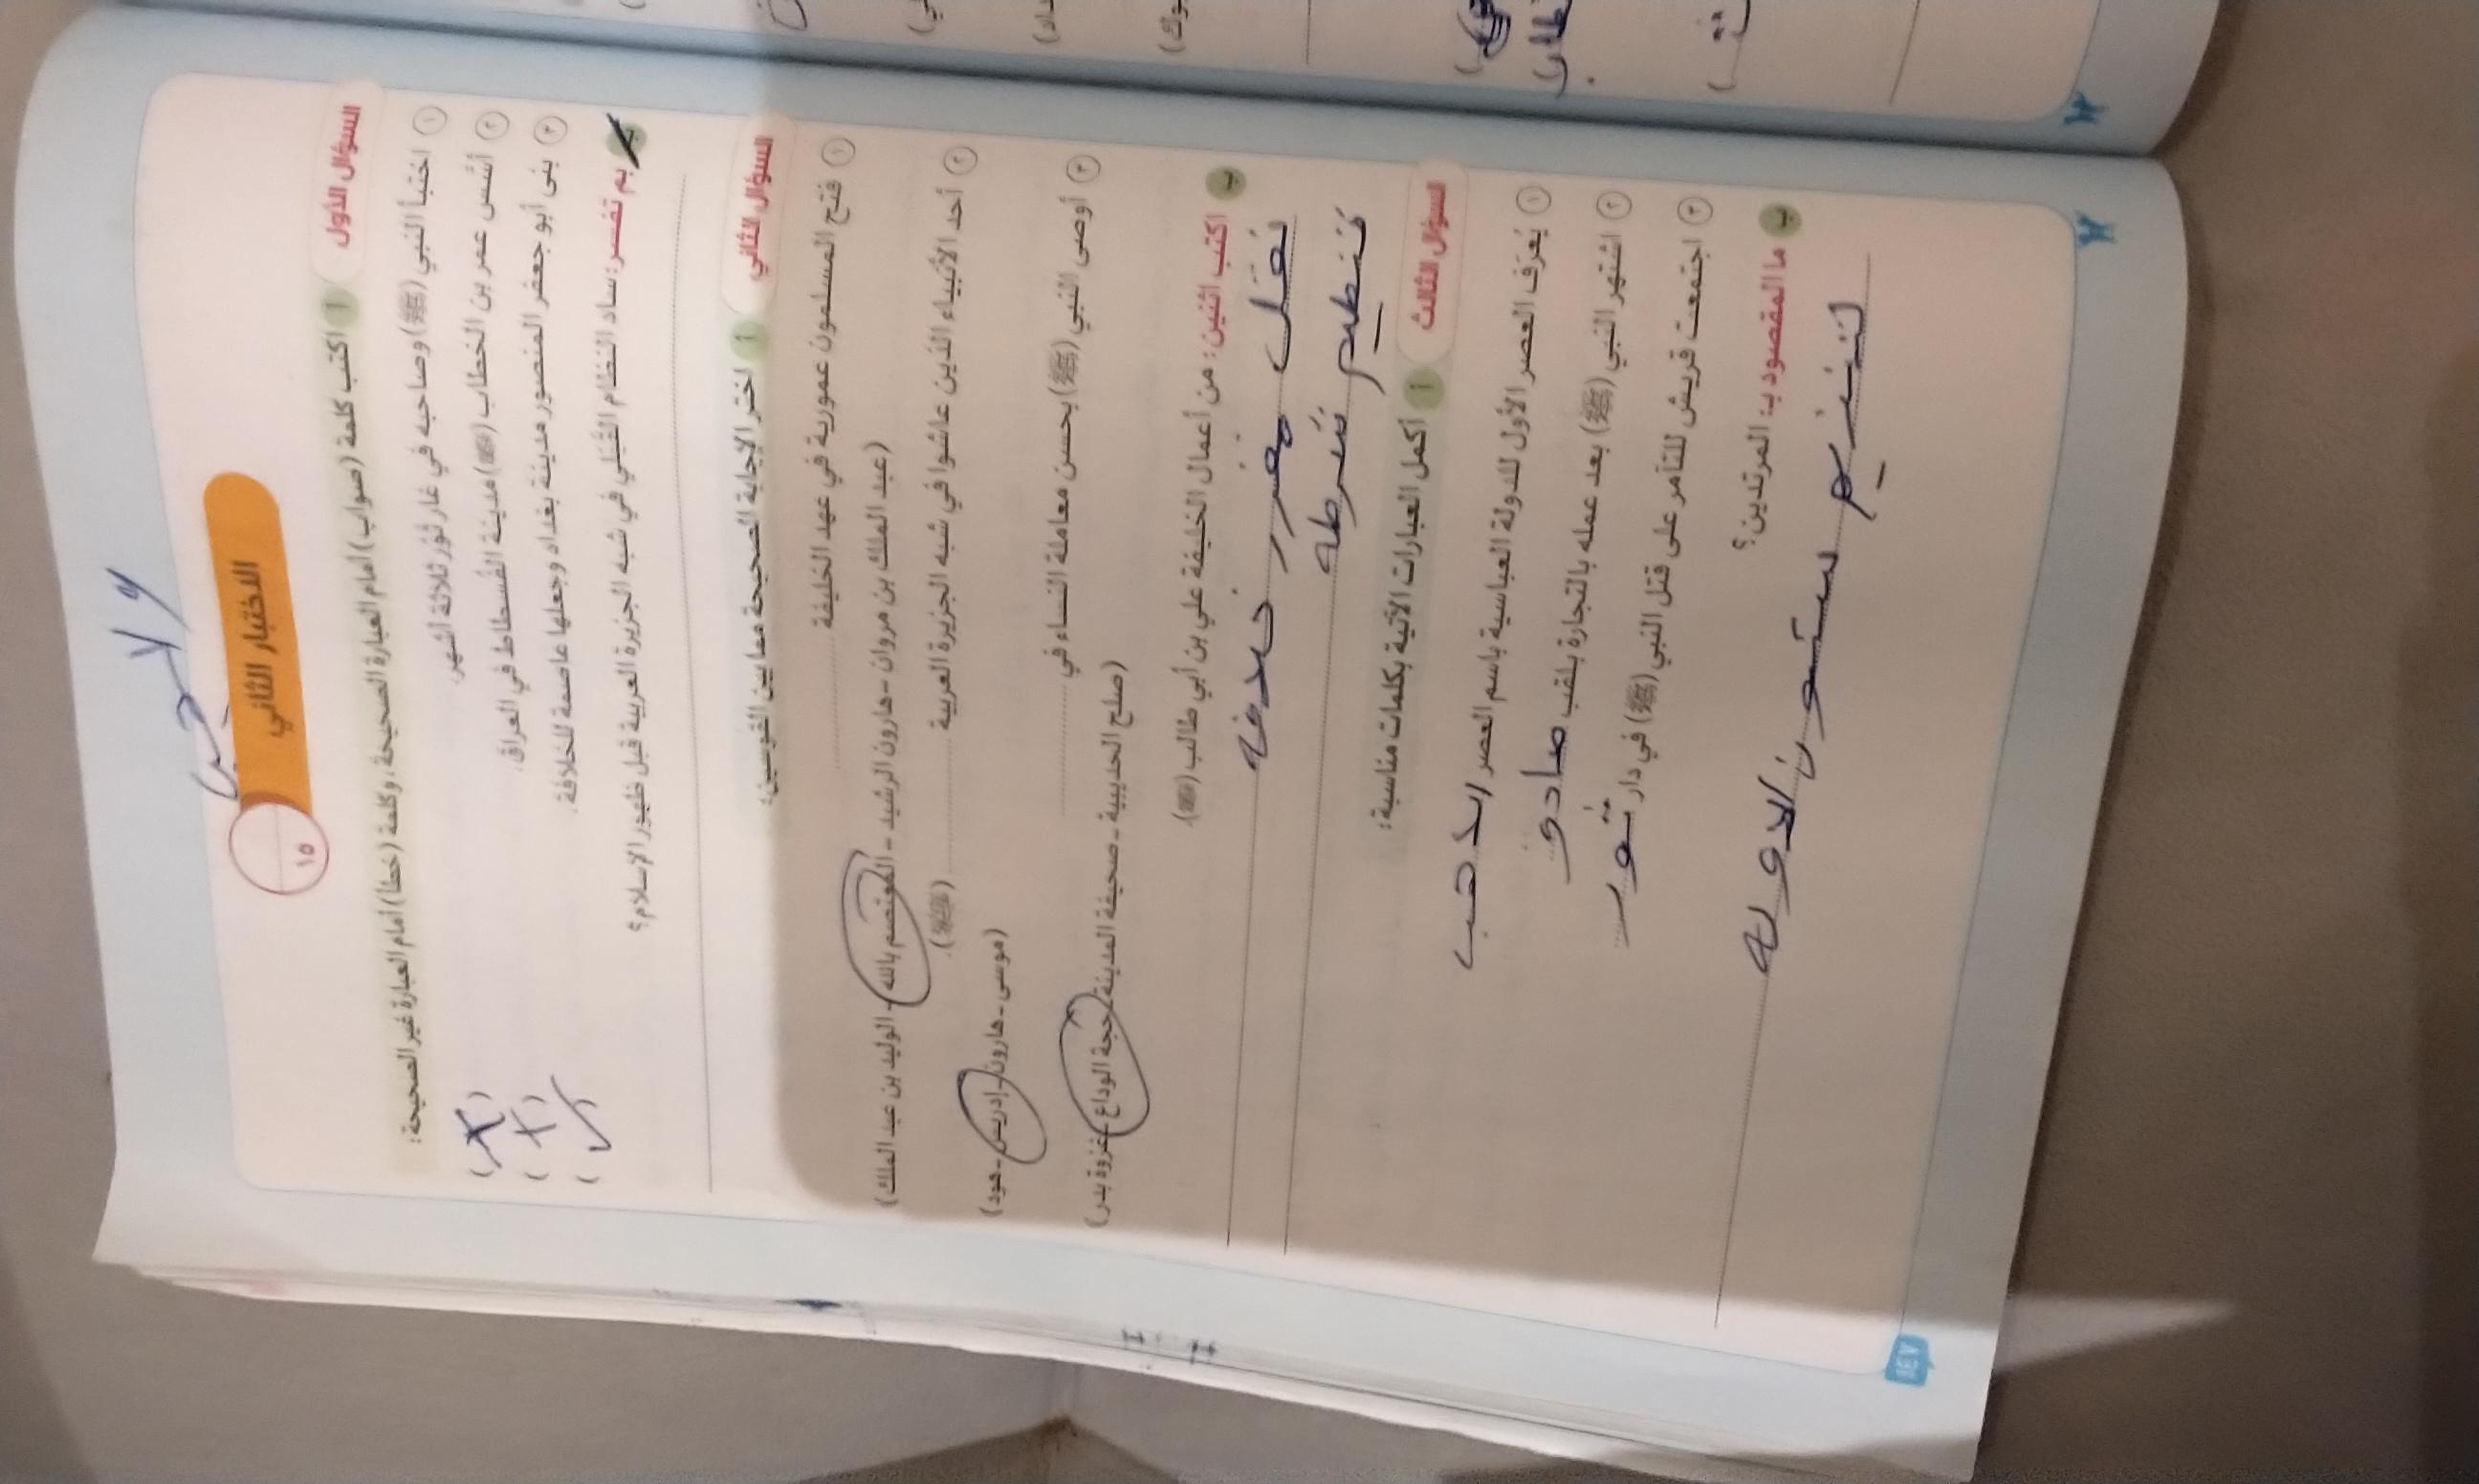 الاختبار الثاني
١٥
السؤال الأول
أ اكتب كلمة (صواب) أمام العبارة الصحيحة، وكلمة (خطأ) أمام العبارة غير الصحيحة:
١ اختبأ النبي (ﷺ) وصاحبه في غار ثور ثلاثة أشهر. (✗)
٢ أسَّس عمر بن الخطاب (رضي الله عنه) مدينة الفُسطاط في العراق. (✗)
٣ بنى أبو جعفر المنصور مدينة بغداد وجعلها عاصمة للخلافة. (✓)
ب بم تفسر: ساد النظام القَبَلي في شبه الجزيرة العربية قبل ظهور الإسلام؟
السؤال الثاني
أ اختر الإجابة الصحيحة مما بين القوسين:
١ فتح المسلمون عمورية في عهد الخليفة
(عبد الملك بن مروان - هارون الرشيد - المعتصم بالله - الوليد بن عبد الملك)
٢ أحد الأنبياء الذين عاشوا في شبه الجزيرة العربية
(موسى - هارون - إدريس - هود)
٣ أوصى النبي (ﷺ) بحسن معاملة النساء في
(صلح الحديبية - صحيفة المدينة - حجة الوداع - غزوة بدر)
ب اكتب اثنين: من أعمال الخليفة علي بن أبي طالب (رضي الله عنه).
نقل مقر
تنظيم شرطه
السؤال الثالث
أ أكمل العبارات الآتية بكلمات مناسبة:
١ يُعرَف العصر الأول للدولة العباسية باسم العصر
٢ اشتهر النبي (ﷺ) بعد عمله بالتجارة بلقب صادق
٣ اجتمعت قريش للتآمر على قتل النبي (ﷺ) في دار ثور
ب ما المقصود بـ: المرتدين؟